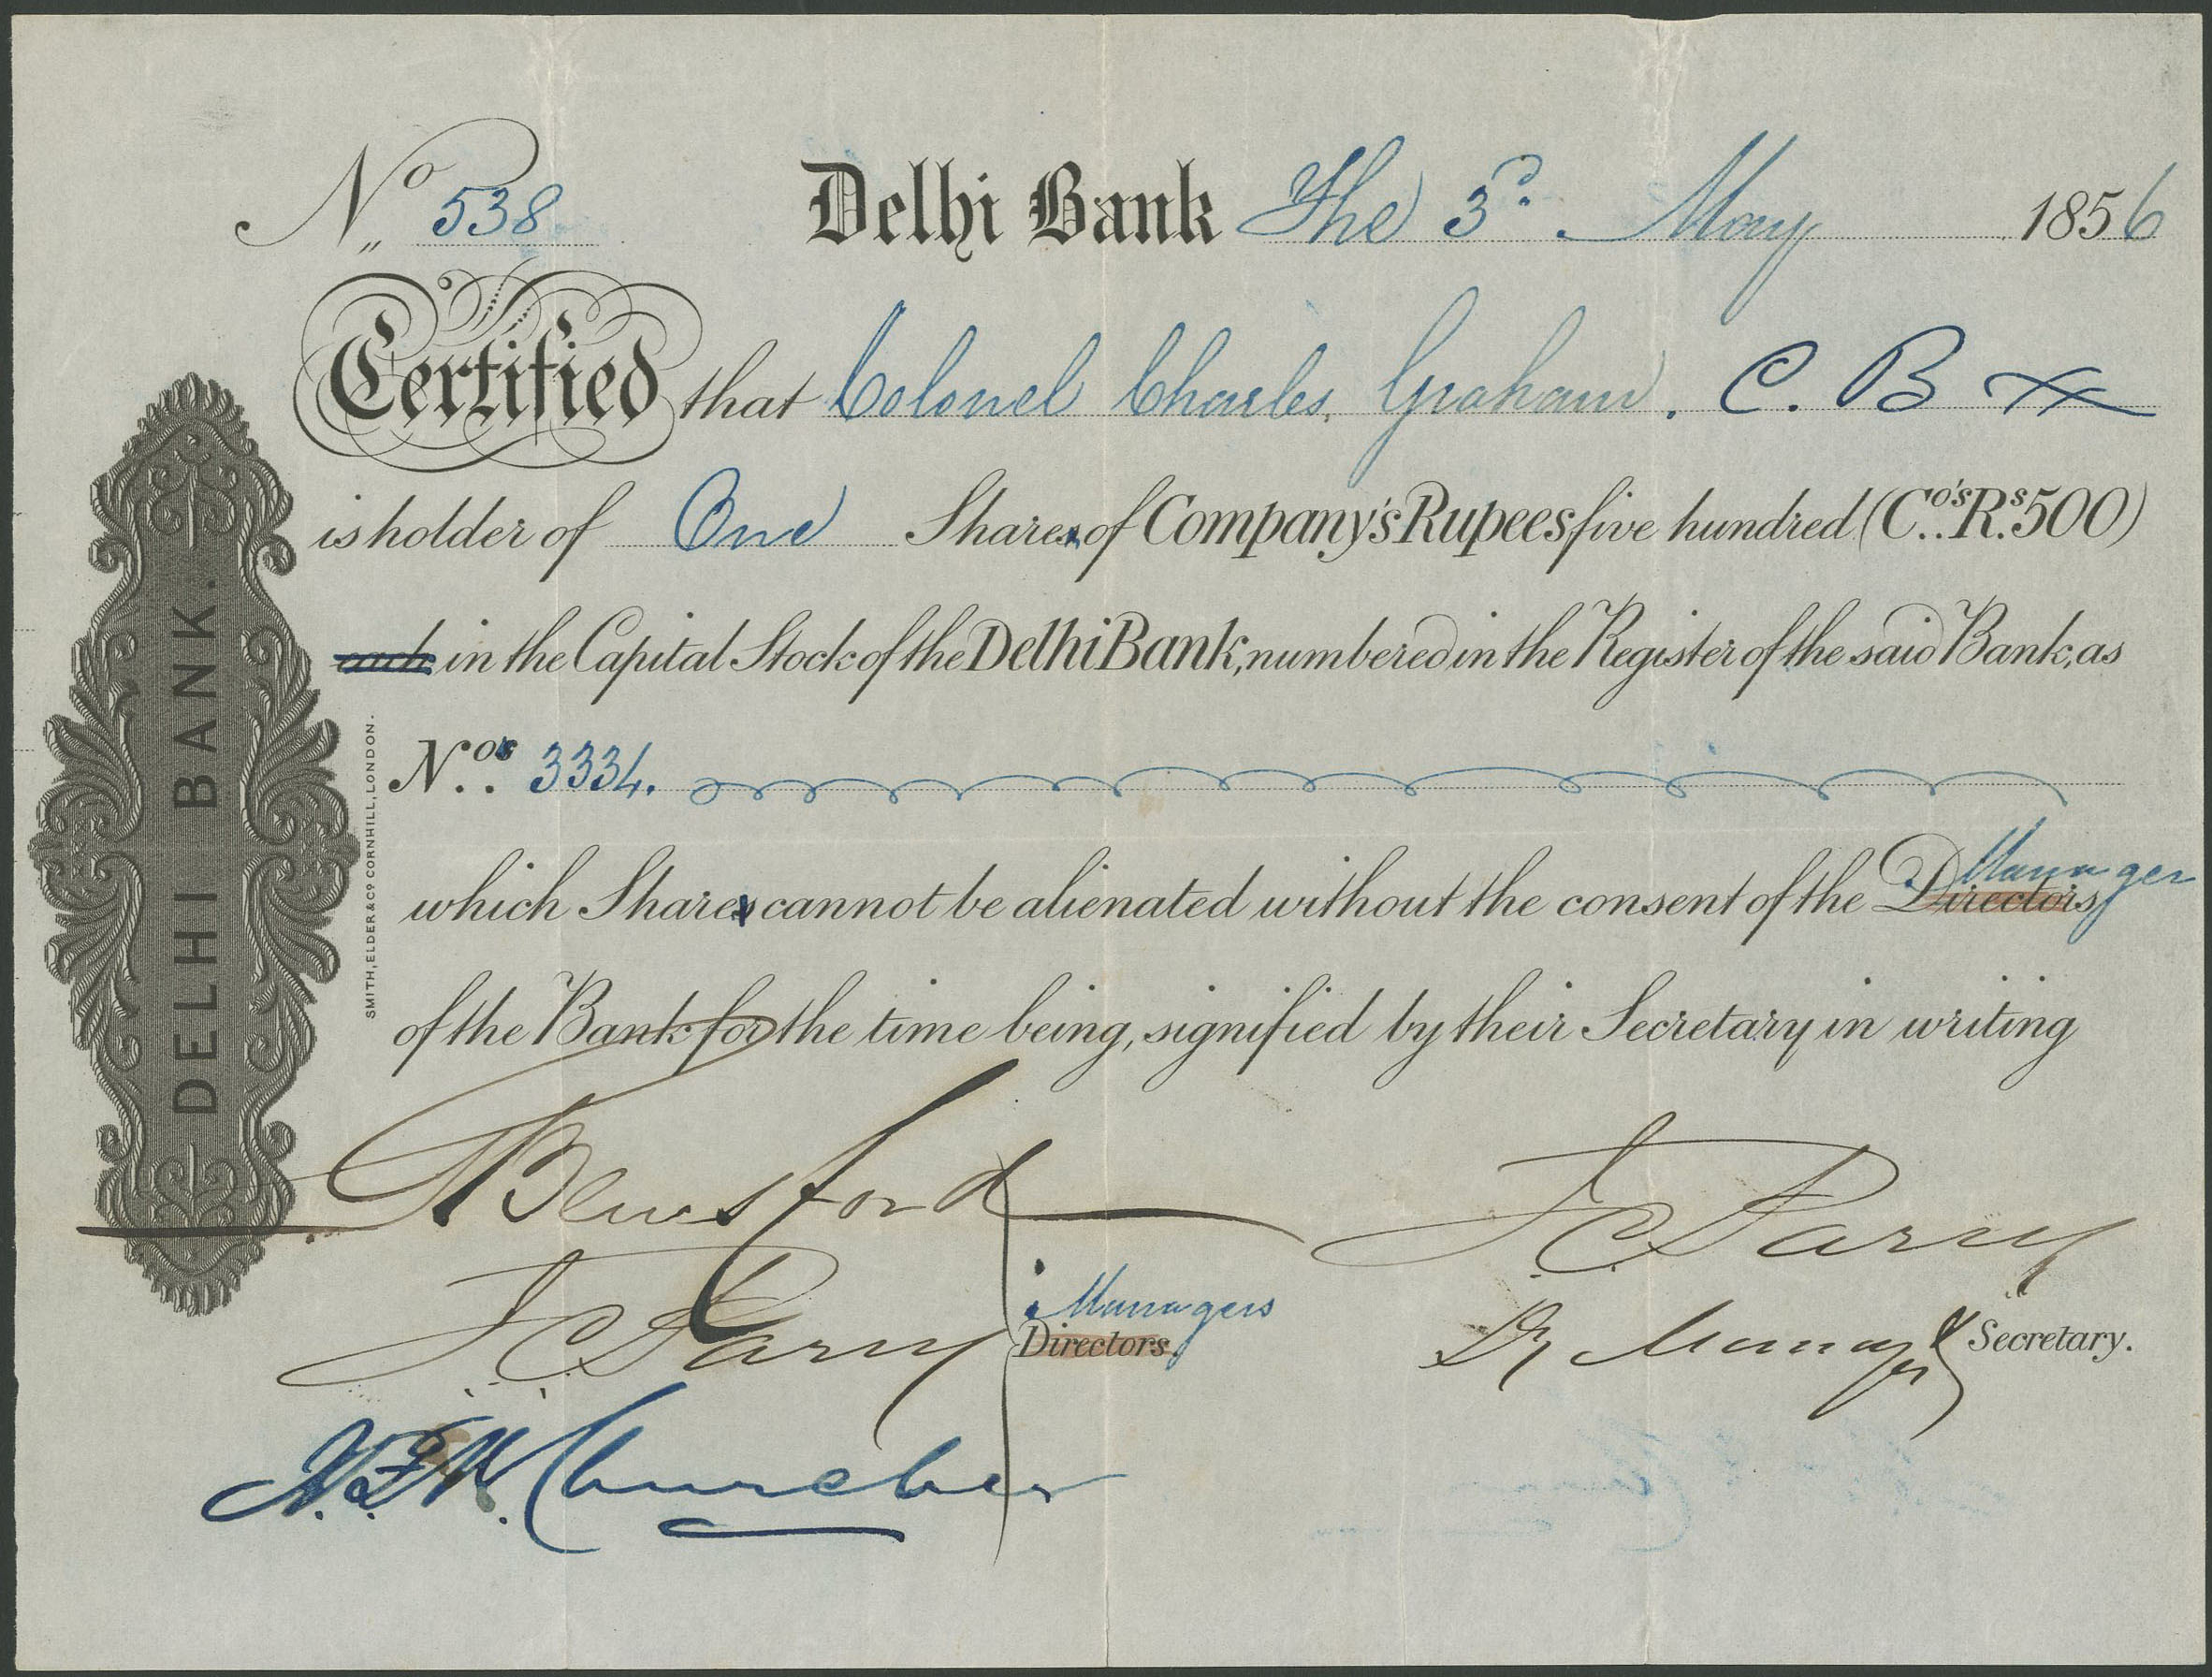 No 538 Delhi Bank The 3d. May 1856
Certified that Colonel Charles Graham. C. B
is holder of One Shares of Company's Rupees five hundred (Co's Rs. 500)
each in the Capital Stock of the Delhi Bank, numbered in the Register of the said Bank, as
Nos. 3334.
which Shares cannot be alienated without the consent of the Directors, Manager
of the Bank for the time being, signified by their Secretary in writing
DELHI BANK.
SMITH, ELDER & CO. CORNHILL, LONDON.
Beresford
J. C. Parry
J. C. Parry
Managers
Directors.
Dy Manager Secretary.
Churcher